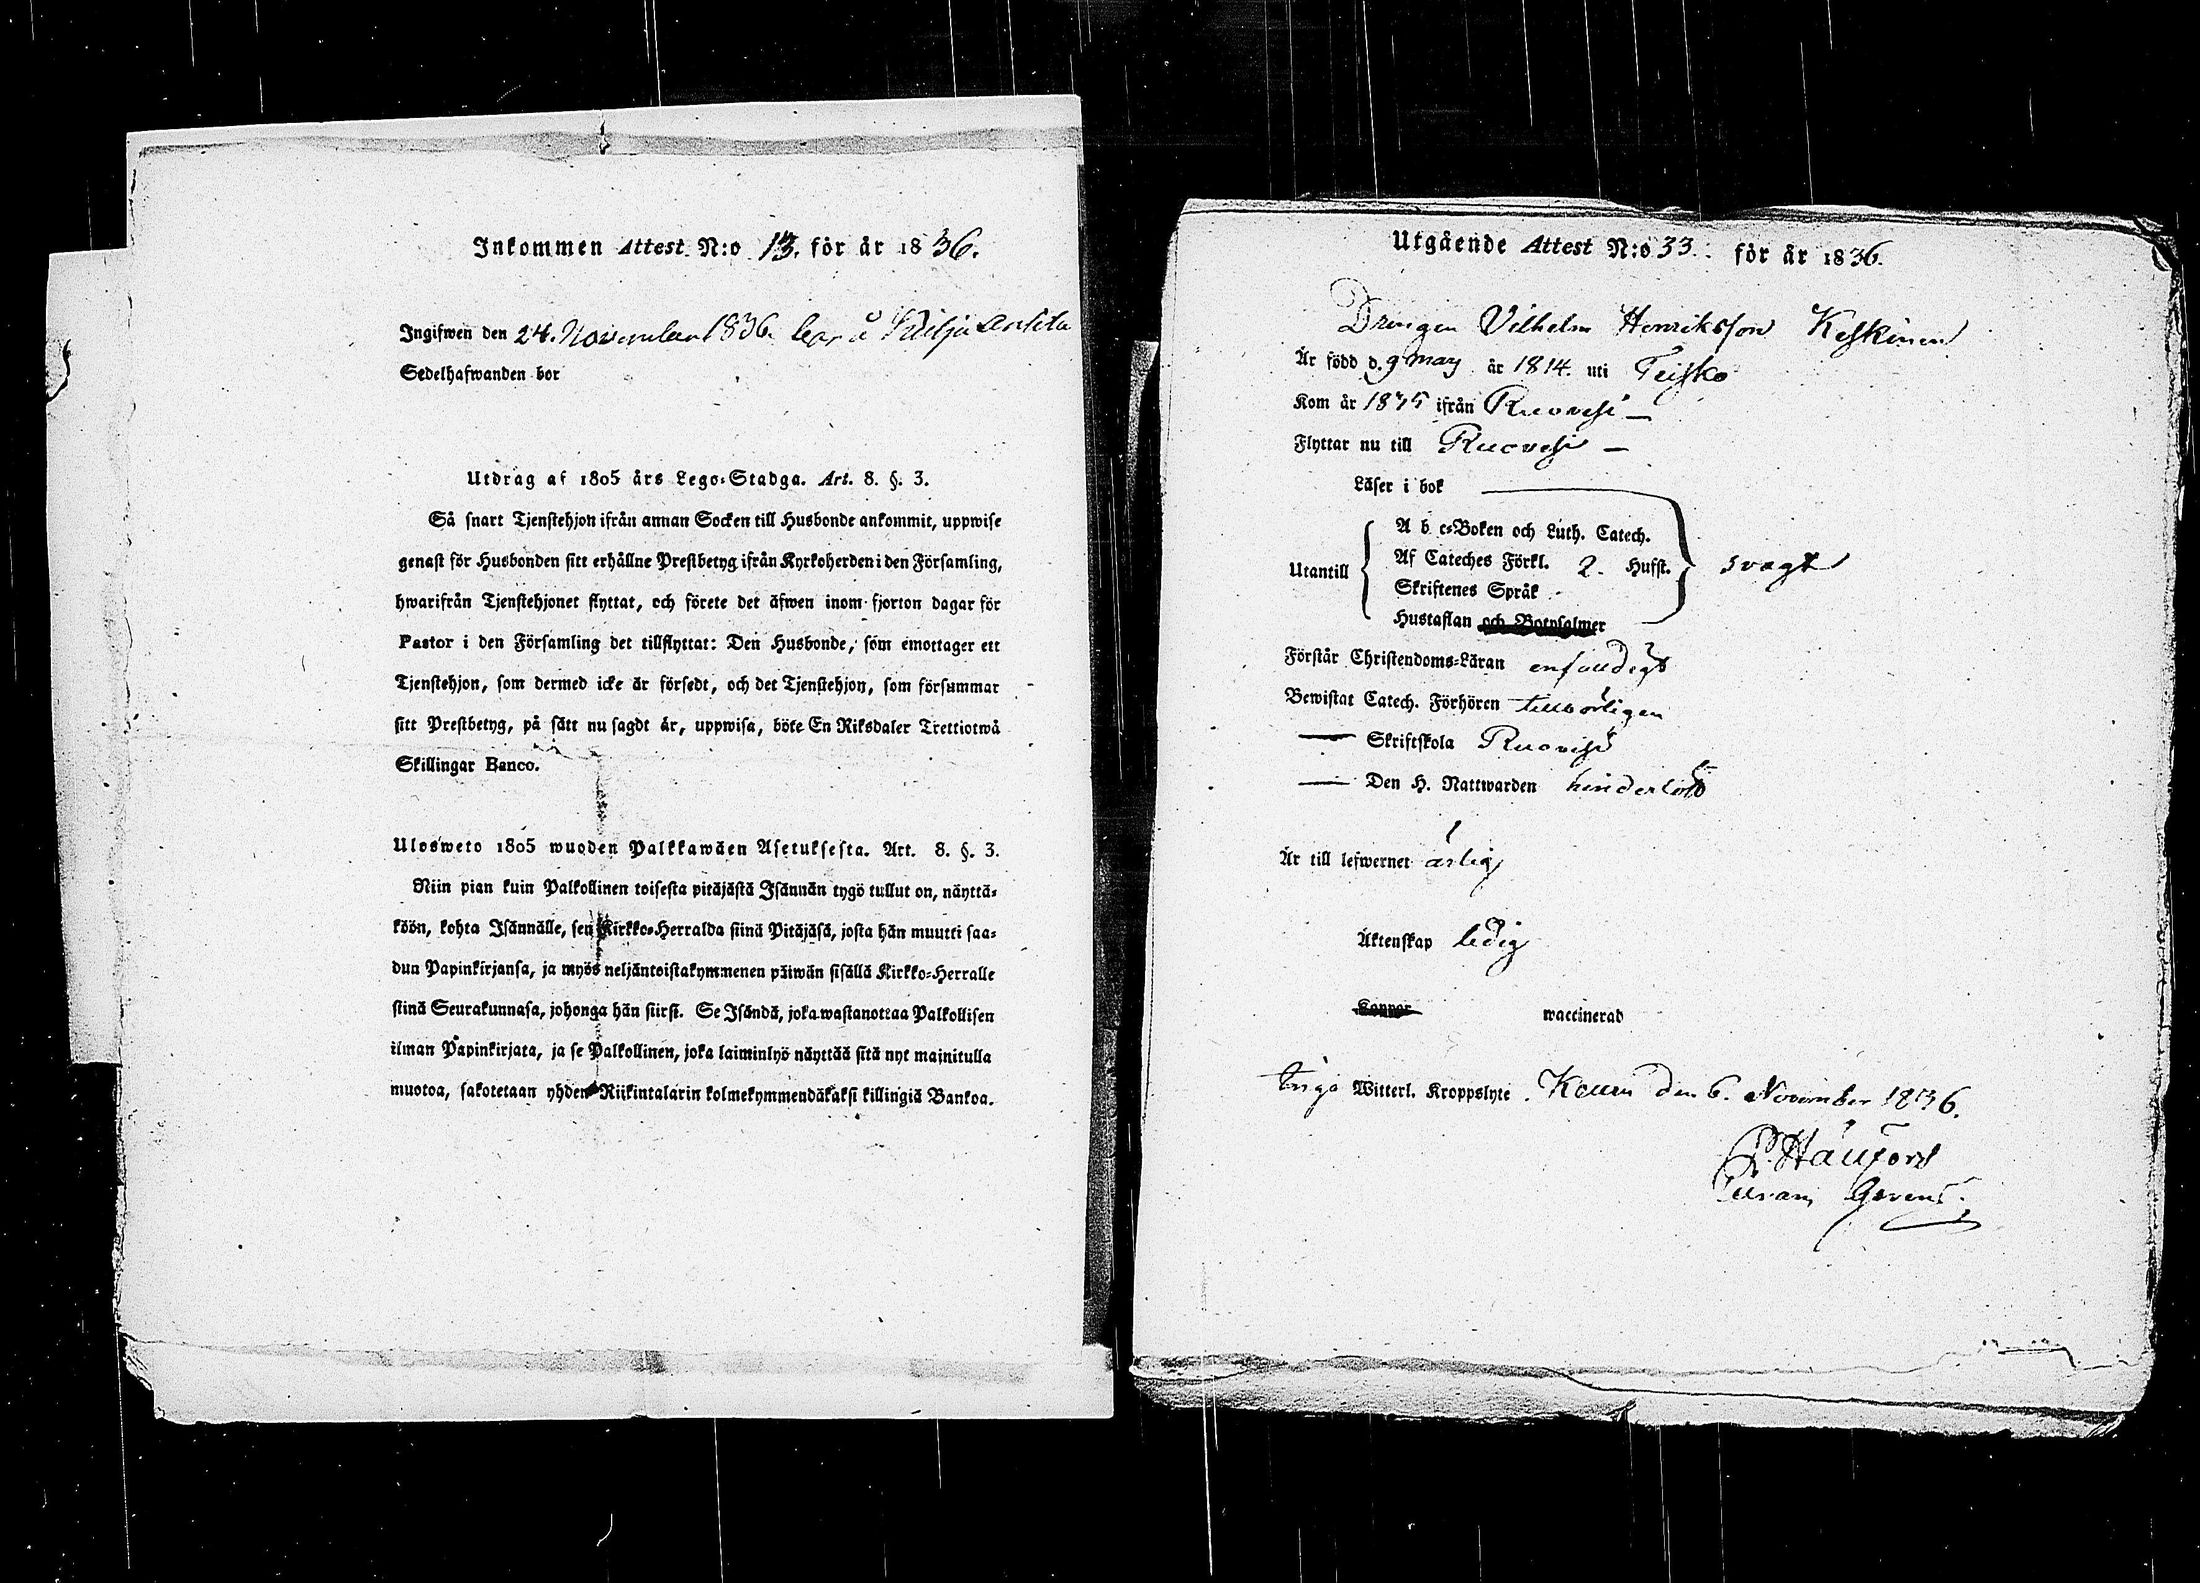 Inkommen Attest N:o 13. för år 1836.
Ingifwen den 24. November 1836.
Sedelhafwanden bor
Utdrag af 1805 års Lego-Stadga. Art. 8. §. 3.
Så snart Tjenstehjon ifrån annan Socken till Husbonde ankommit, uppwise
genast för Husbonden sitt erhållne Prestbetyg ifrån Kyrkoherden i den Församling,
hwarifrån Tjenstehjonet flyttat, och förete det äfwen inom fjorton dagar för
Pastor i den Församling det tillflyttat: Den Husbonde, som emottager ett
Tjenstehjon, som dermed icke är försedt, och det Tjenstehjon, som försummar
sitt Prestbetyg, på sätt nu sagdt är, uppwisa, böte En Riksdaler Trettiotwå
Skillingar Banco.
Ulosweto 1805 wuoden Palkkawäen Asetuksesta. Art. 8. §. 3.
Niin pian kuin Palkollinen toisesta pitäjästä Isännän tygö tullut on, näyttä-
köön, kohta Isännälle, sen Kirkko-Herralda siinä Pitäjäsä, josta hän muutti saa-
dun Papinkirjansa, ja myös neljäntoistakymmenen päiwän sisällä Kirkko-Herralle
siinä Seurakunnasa, johonga hän siirsi. Se Isändä, joka wastanottaa Palkollisen
ilman Papinkirjata, ja se Palkollinen, joka laiminlyö näyttää sitä nyt mainitulla
muotoa, sakotetaan yhden Riikintalarin kolmekymmendäkaksi killingiä Bankoa.
Utgående Attest N:o 33. för år 1836.
Drengen Vilhelm Henriksson Keskinen
Är född d. 9 may år 1814. uti Teisko
Kom år 1835 ifrån Ruovesi
Flyttar nu till Ruovesi
Läser i bok
A b c-Boken och Luth. Catech.
Utantill Af Cateches Förkl. 2. Hufst. svagt
Skriftenes Språk
Hustaflan och Botpsalmer
Förstår Christendoms-Läran enfaldigt
Bewistat Catech. Förhören tillbörligen
— Skriftskola Ruovesi
— Den H. Nattwarden hinderlöst
Är till lefwernet ärlig
Äktenskap ledig
Koppor waccinerad
Inga Witterl. Kroppslyte. Keuru den 6. November 1836.